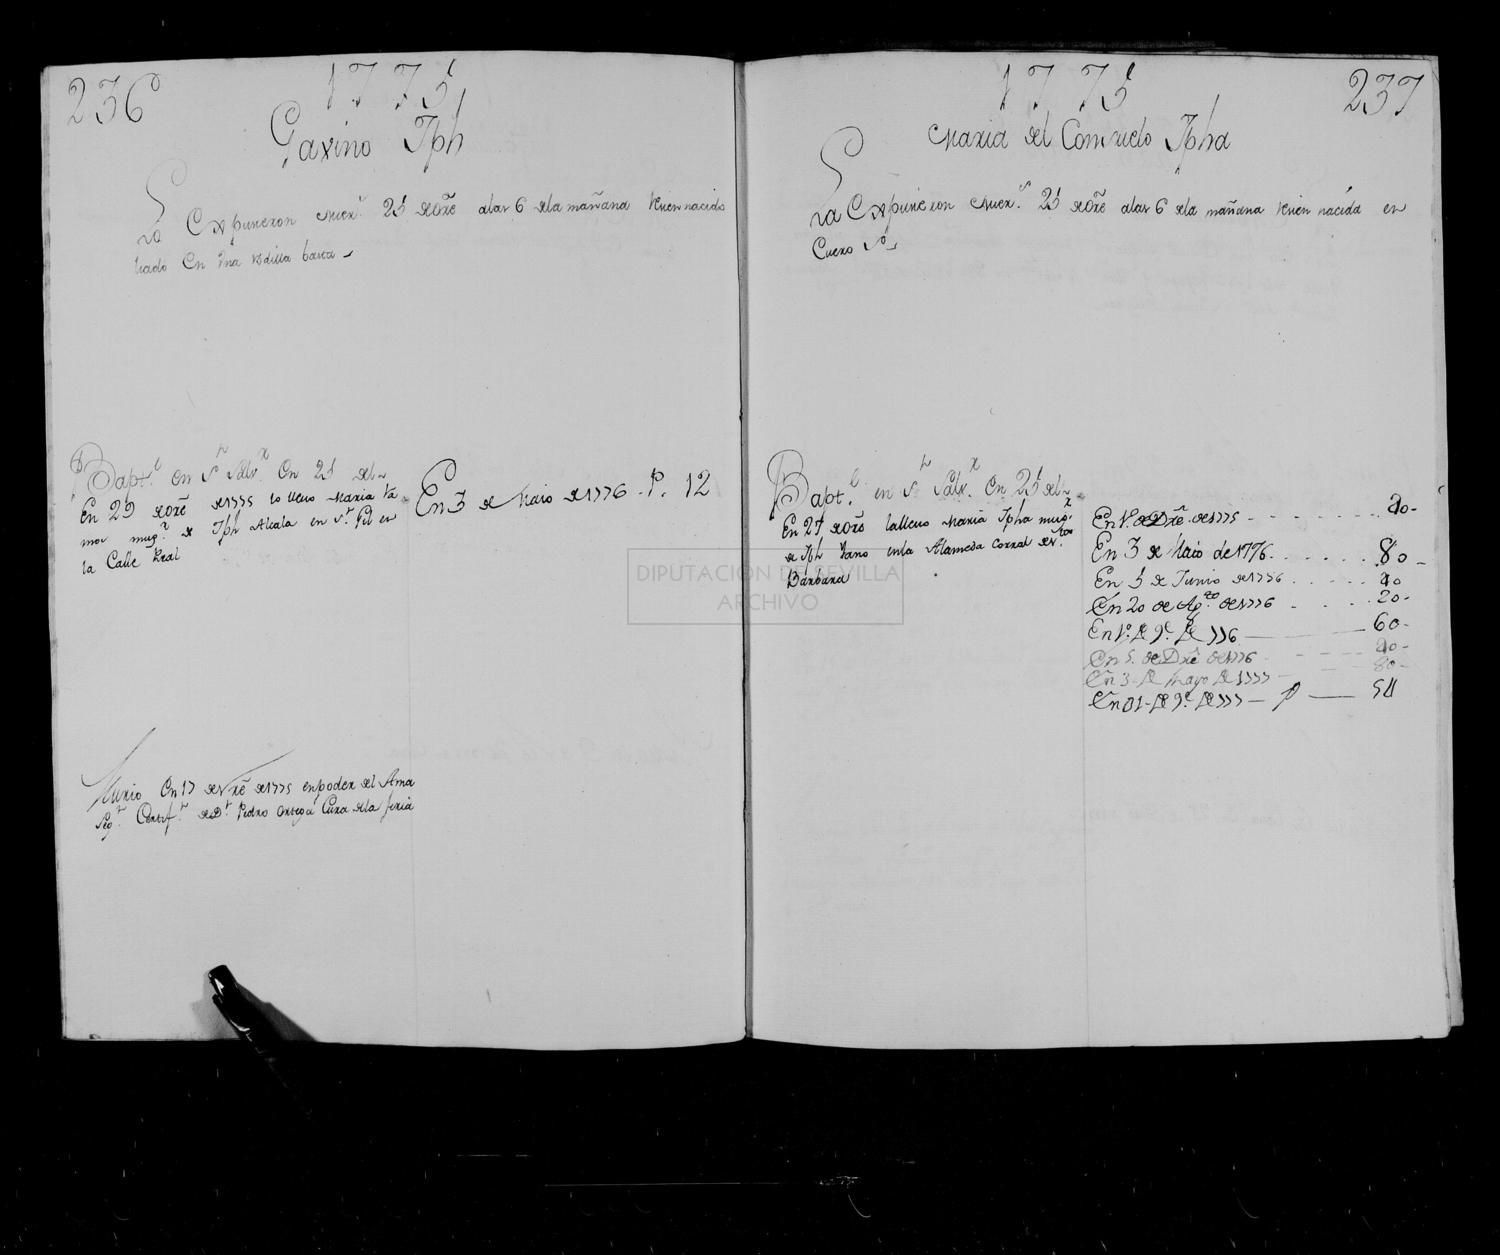 236
1775
Gavino Jph
Lo Expusieron Mier.s 25 de Oñe alas 6 dela mañana Recien nacido
En Una Rdilla basta
Bapt.o en S.r Salv.r En 25 del
En 29 de Oñe de 1775 lo llevo Maria
mug.r de Jph Alcala en S.n Gil en
la Calle Real
En 3 de Maio de 1776 - P. 12
Murio En 17 de Nre de 1775 en poder del Ama
Seg.n Certif.n de D.n Pedro Ortega Cura dela feria
237
1775
Maria del Consuelo Jpha
La Expusieron Mier.s 25 de Oñe alas 6 dela mañana Recien nacida en
Cuero
Bapt.o en S.r Salv.r En 25 del
En 27 de Oñe la llevo Maria Jpha mug.r
de Jph en la Alameda Corral de
Barbara
En 1.o de Dre de 1775 - 20-
En 3 de Maio de 1776 80-
En 5 de Junio de 1776 20
En 20 de Ag.to de 1776 20-
En 1.o de 9.e de 776 60-
En 5 de Dre de 1776 20-
En 3 de Mayo de 1777 80-
En 01 de 9.e de 777 - P 54
DIPUTACIÓN DE SEVILLA
ARCHIVO